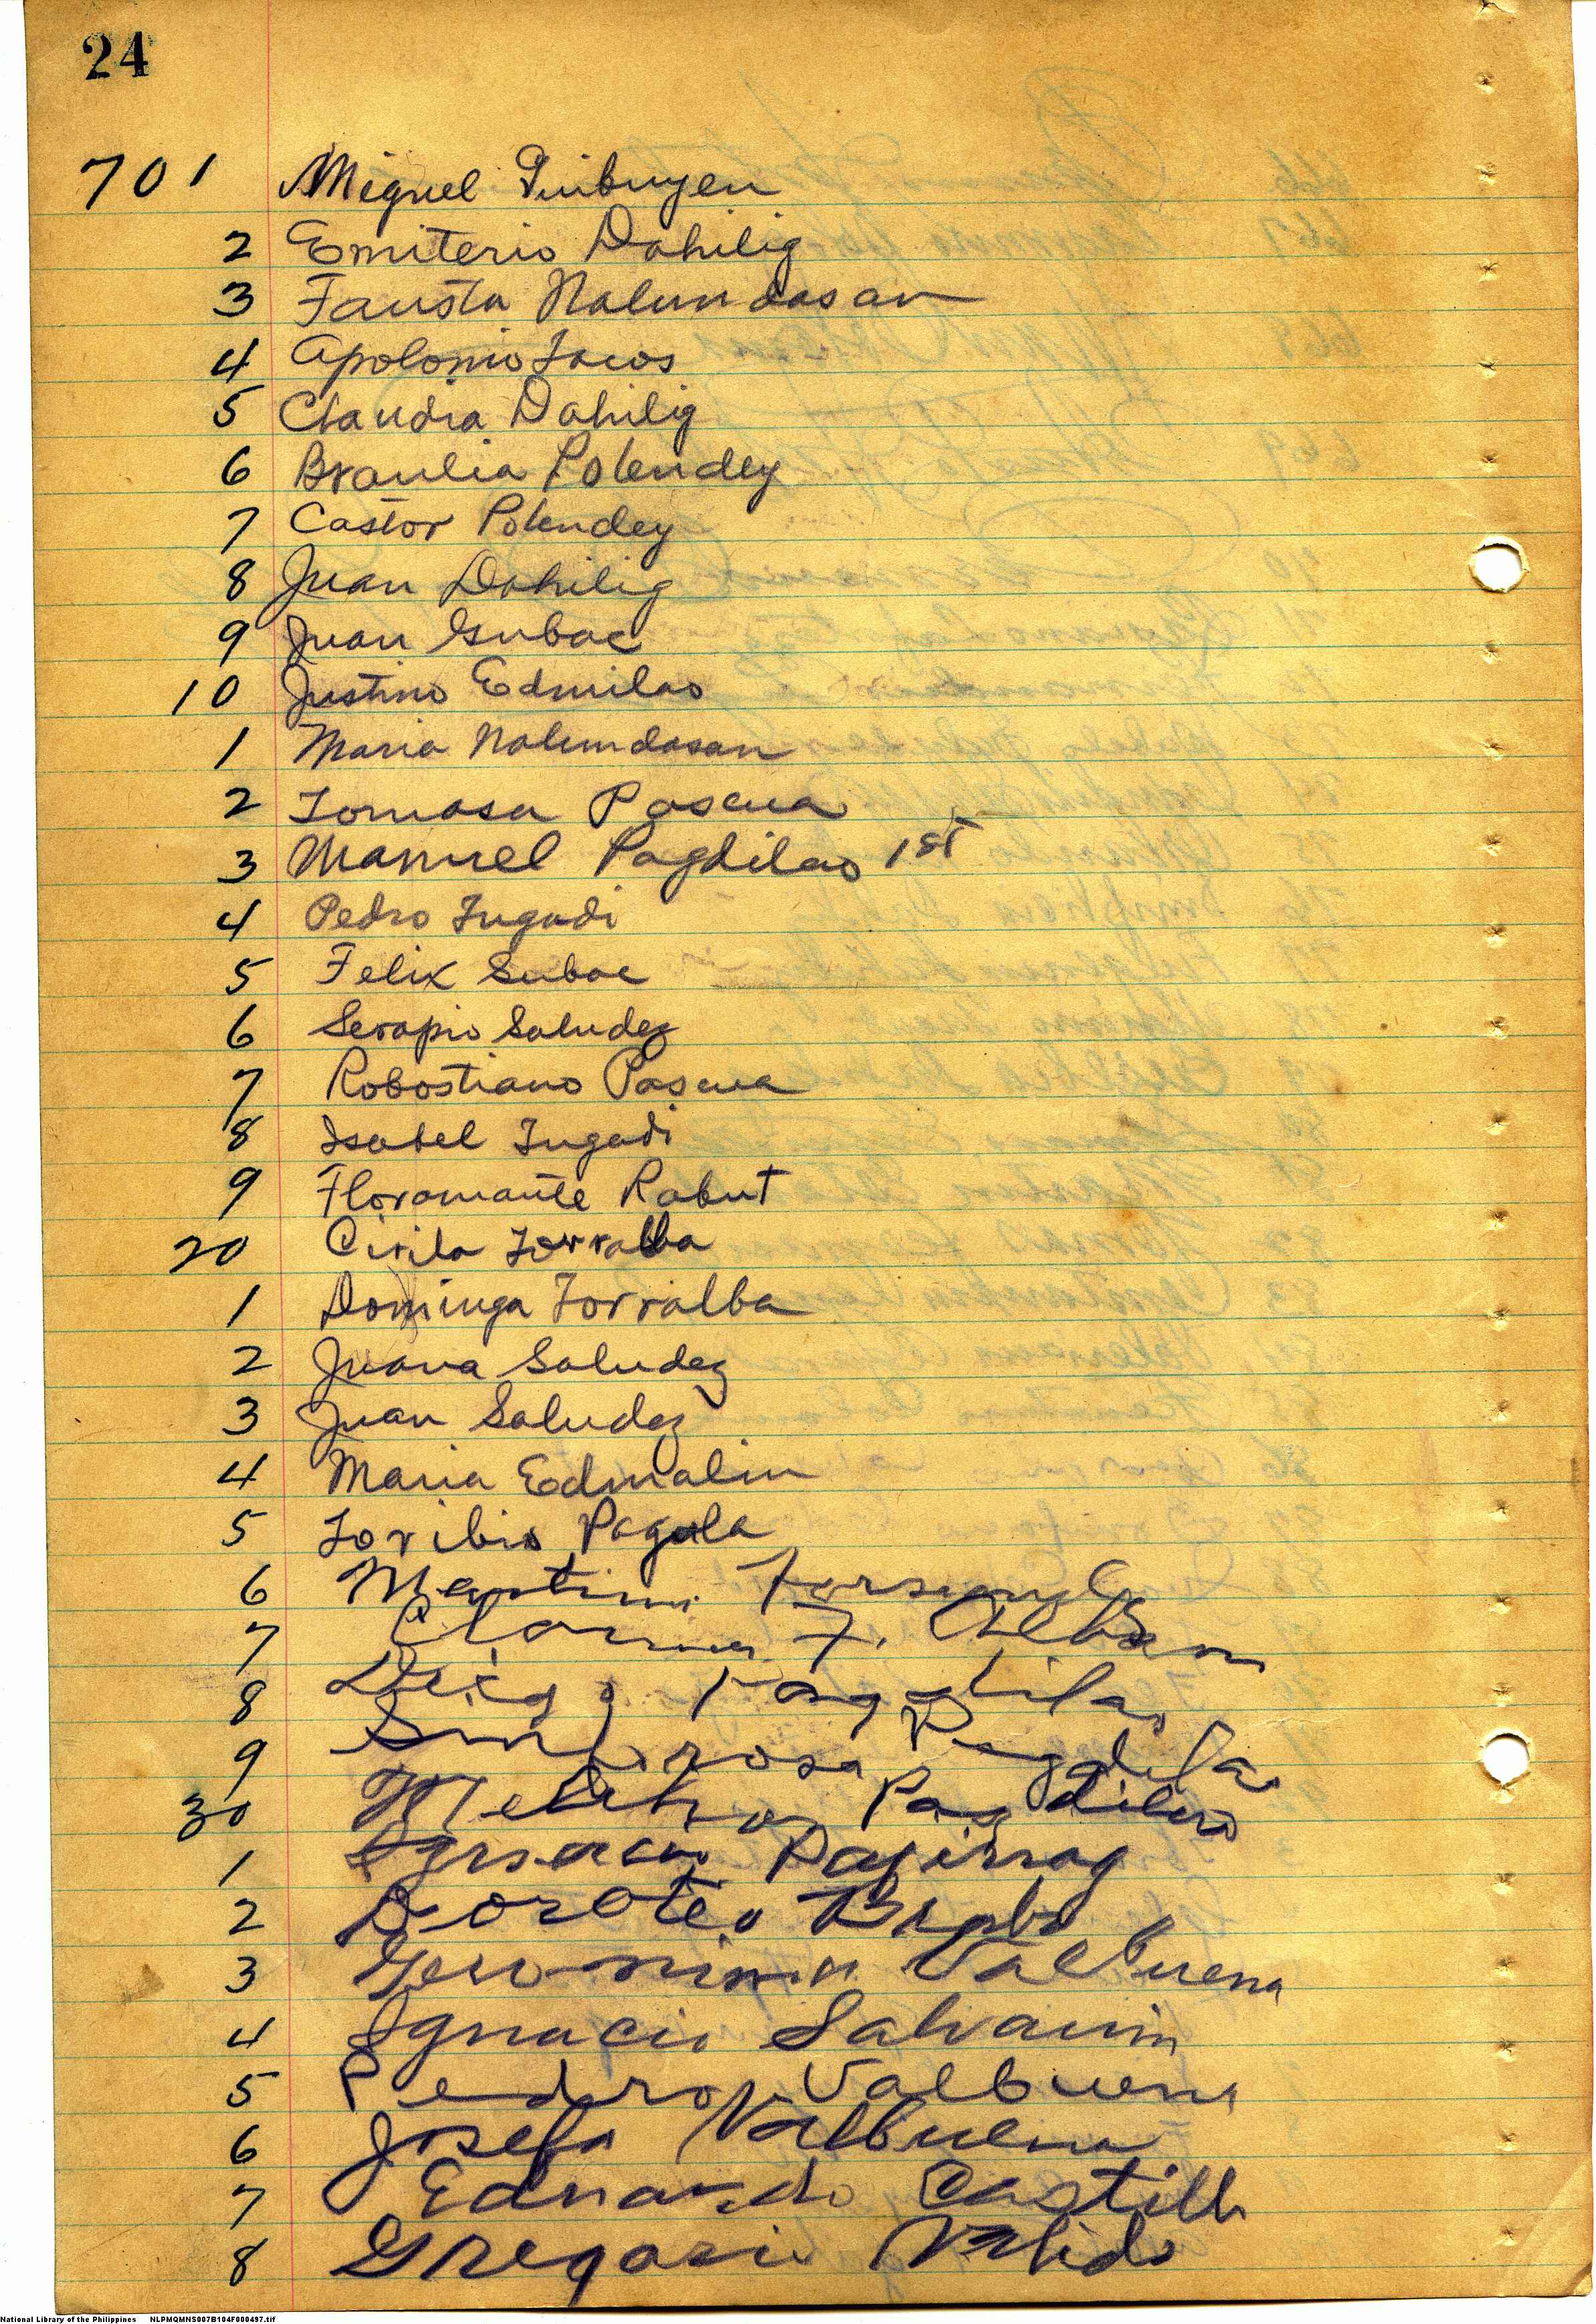 24
701 Miguel Quibuyen
2 Emiterio Dahilig
3 Fausta Nalundasan
4 Apolonio
5 Claudia Dahilig
6 Braulia Polendey
7 Castor Polendey
8 Juan Dahilig
9 Juan Subac
10 Justino Edmilao
1 Maria Nalundasan
2 Tomasa Pascua
3 Manuel Pagdilao 1st
4 Pedro Tugadi
5 Felix Subac
6 Serapio Saludez
7 Robostiano Pascua
8 Isabel Tugadi
9 Floramante Rabut
20 Cirila Torralba
1 Dominga Torralba
2 Juana Saludez
3 Juan Saludez
4 Maria Edmalin
5 Toribio Pagala
6
7
8 Pagdilao
9 Sinforosa Pagdilao
30 Melchor Pagdilao
1 Ignacio
2 Doroteo
3 Geronima Valbuena
4 Ignacio
5 Pedro Valbuena
6 Josefa Valbuena
7 Eduardo Castillo
8 Gregorio
National Library of the Philippines NLPMQMNS007B104F000497.tif